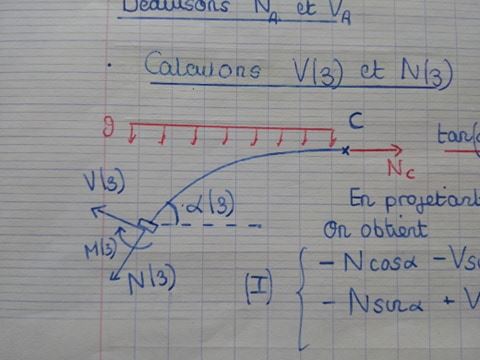 Déduisons N_A et V_A
· Calculons V(3) et N(3)
g
C
tan(
N_C
V(3)
α(3)
M(3)
N(3)
En projetant
On obtient
(I)
- N cosα - V s
- N sinα + V